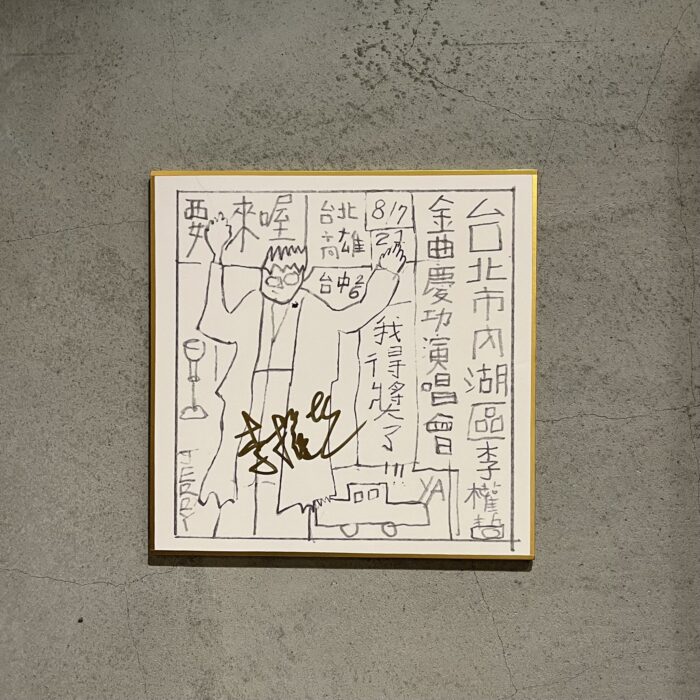 台北市內湖區李權哲
金曲慶功演唱會
要來喔
台北 8/7
高雄
台中26
我得獎了!!!
YA
李權哲